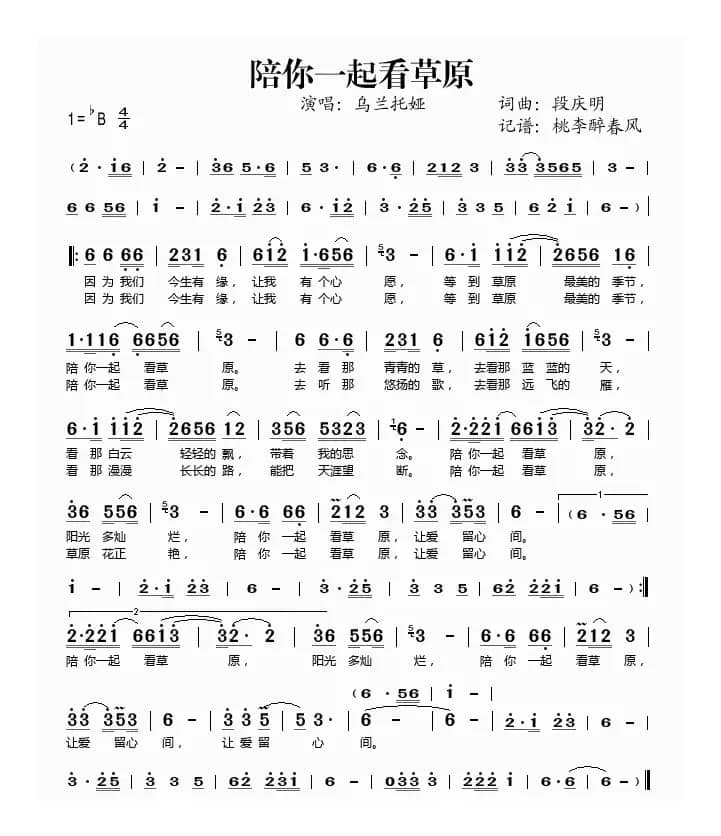 陪你一起看草原
演唱：乌兰托娅 词曲：段庆明
1=♭B 4/4 记谱：桃李醉春风
(2·i6 | 2 - | 36 5·6 | 5 3· | 6·6 | 212 3 | 33 3565 | 3 - |
6 6 56 | i - | 2·i 23 | 6·i2 | 3·25 | 3 3 5 | 6 2 i | 6 -) |
‖: 6 6 66 | 231 6 | 6i2 i·656 | 5 3 - | 6·i iii2 | 2656 16 |
因为我们 今生有缘，让我 有个心 愿， 等到草原 最美的季节，
因为我们 今生有缘，让我 有个心 愿， 等到草原 最美的季节，
1·116 6656 | 5 3 - | 6 6·6 | 231 6 | 6i2 i656 | 5 3 - |
陪你一起 看草 原。 去看那 青青的草，去看那 蓝蓝的 天，
陪你一起 看草 原。 去听那 悠扬的歌，去看那 远飞的 雁，
6·i ii2 | 2656 12 | 356 5323 | 1 6 - | 2·22i 66i3 | 32·2 |
看那白云 轻轻的飘，带着 我的思 念。 陪你一起 看草 原，
看那漫漫 长长的路，能把 天涯望 断。 陪你一起 看草 原，
36 556 | 5 3 - | 6·6 66 | 212 3 | 33 353 | 6 - | 1 (6·56 |
阳光 多灿 烂， 陪你一起 看草原，让爱 留心 间。
草原 花正 艳， 陪你一起 看草原，让爱 留心 间。
i - | 2·i 23 | 6 - | 3·25 | 3 3 5 | 62 22i | 6 -) :‖
2
2·22i 66i3 | 32·2 | 36 556 | 5 3 - | 6·6 66 | 212 3 |
陪你一起 看草 原， 阳光 多灿 烂， 陪你一起 看草原，
(6·56 | i -
33 353 | 6 - | 33 5 | 53· | 6 - | 6 - | 2·i 23 | 6 - |
让爱 留心 间， 让爱留 心 间。
3·25 | 3 3 5 | 62 23i | 6 - | 0333 3 | 222 i | 6·6 | 6 -) ‖